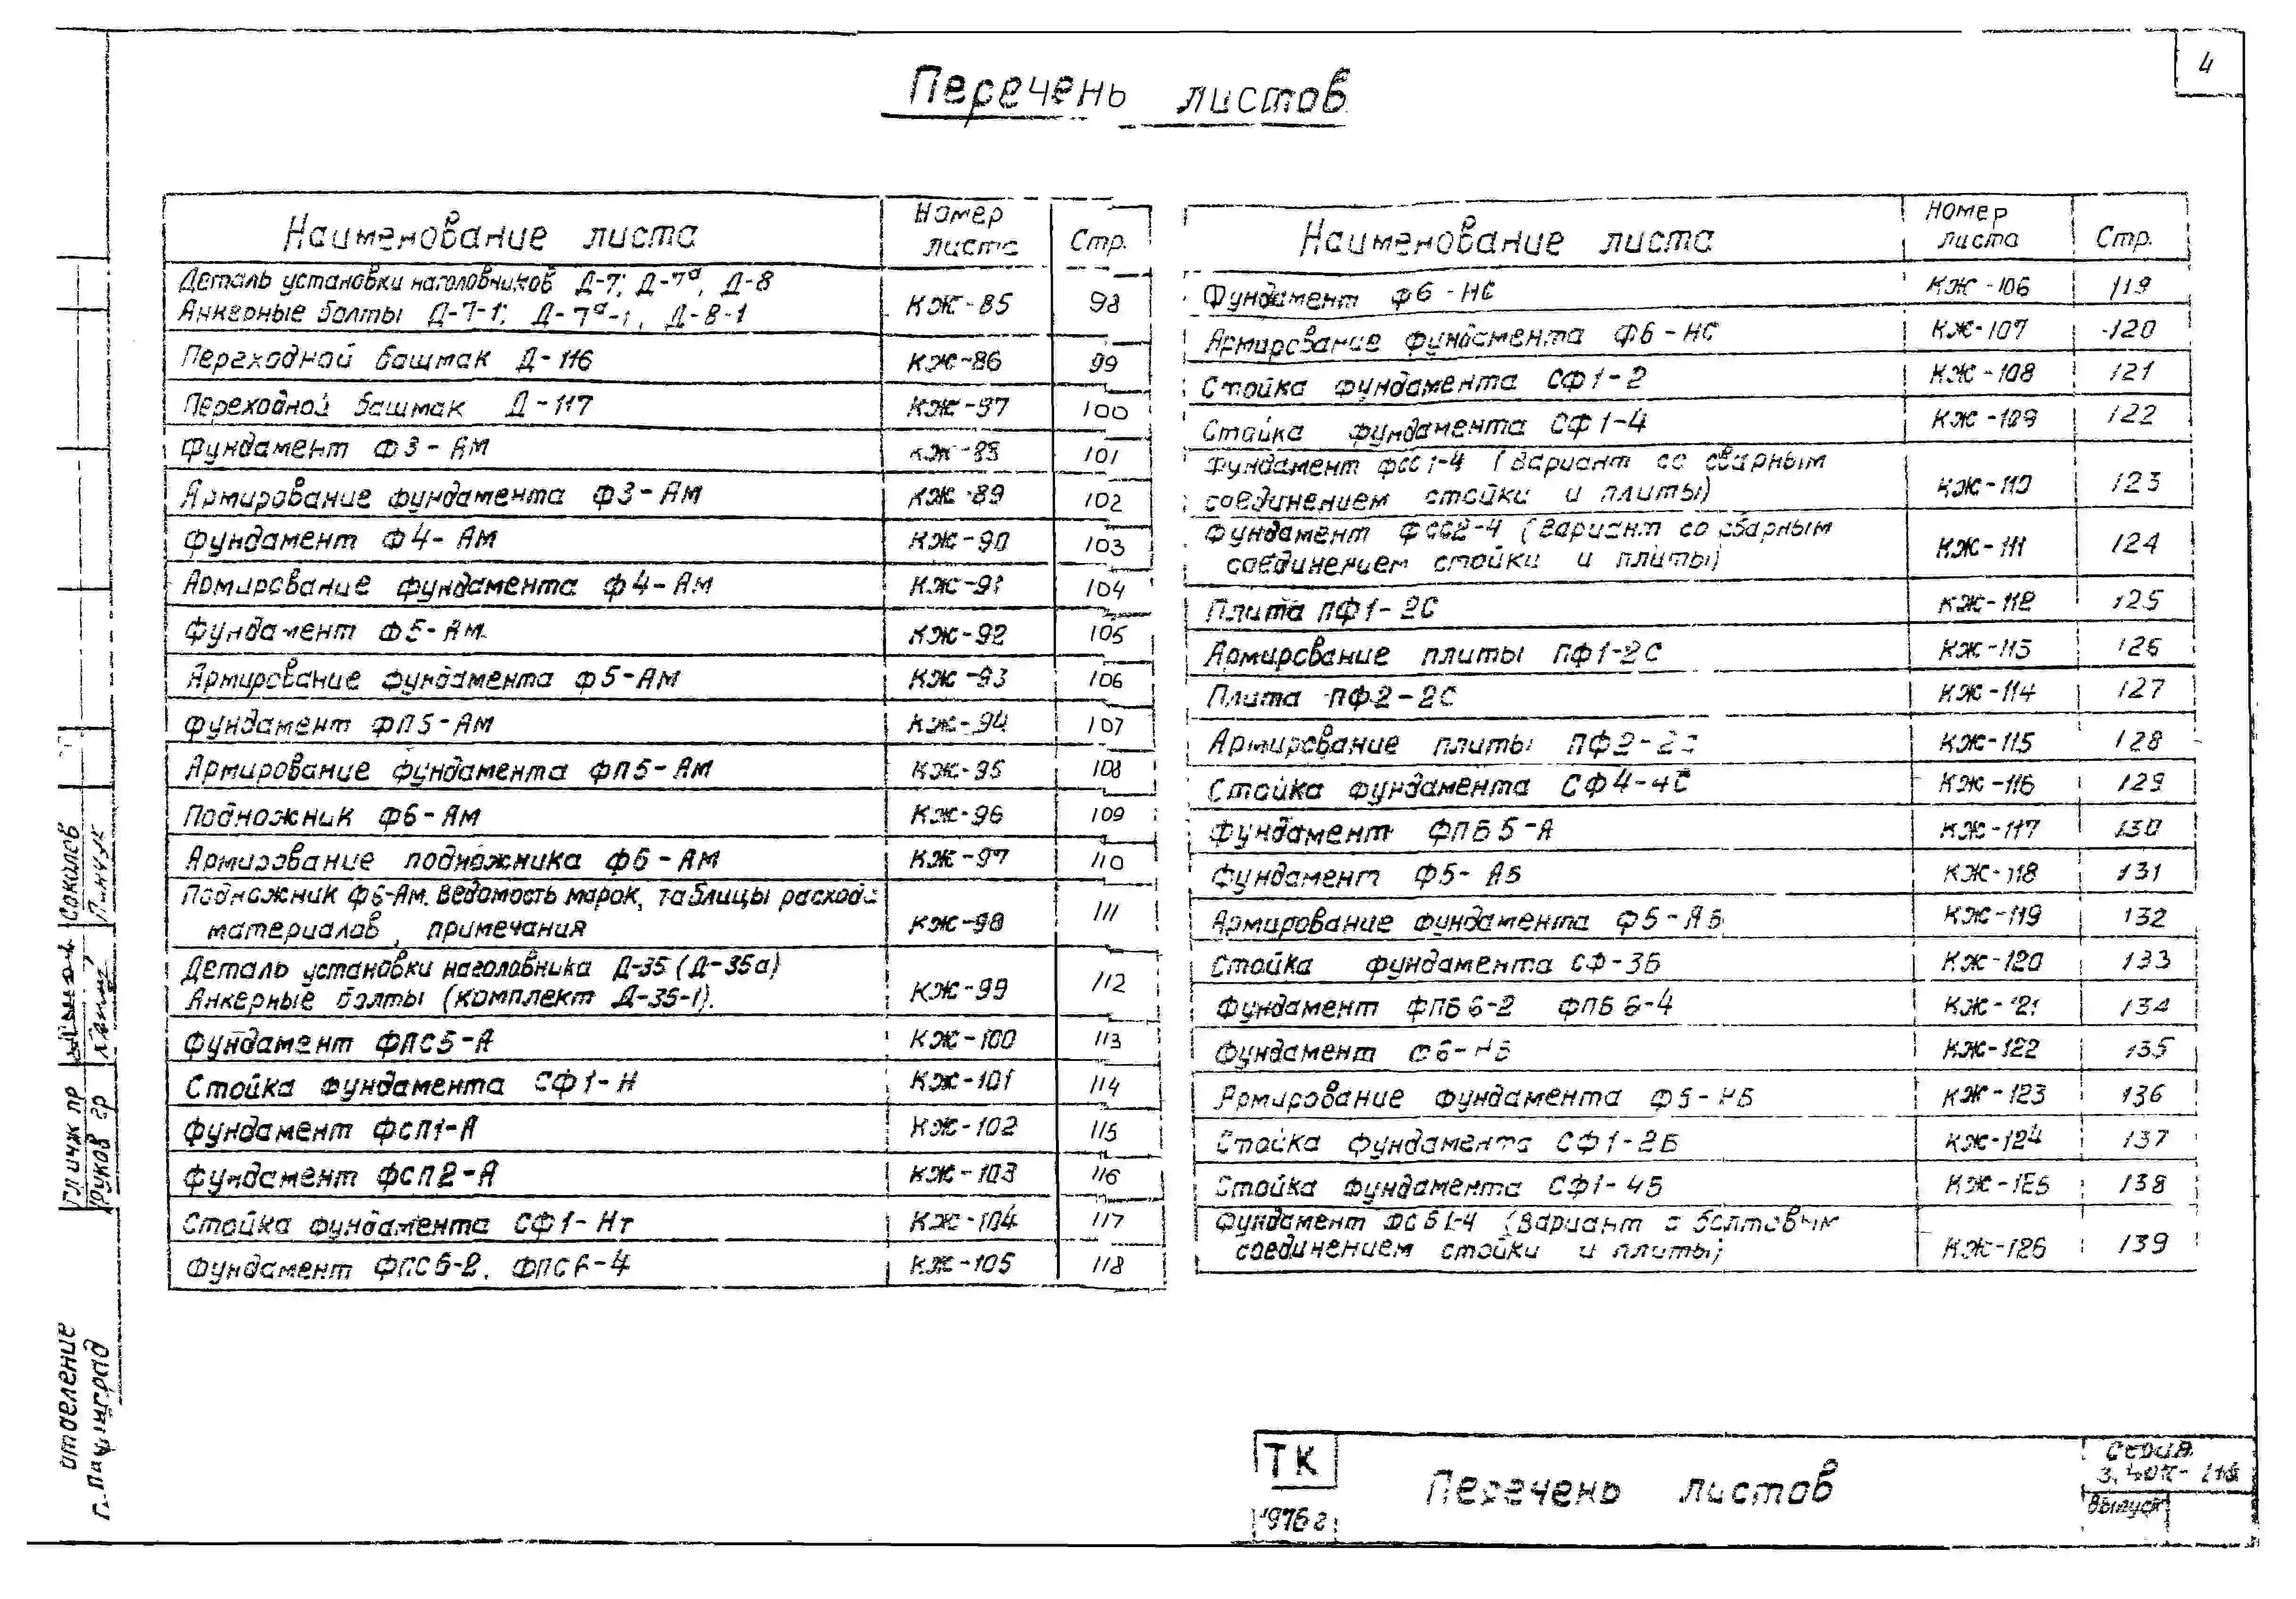 4
Перечень листов
Наименование листа Номер листа Стр.
Деталь установки наголовников Д-7; Д-7а, Д-8
Анкерные болты Д-7-1; Д-7а-1, Д-8-1 КЖ-85 98
Переходной башмак Д-116 КЖ-86 99
Переходной башмак Д-117 КЖ-97 100
Фундамент Ф3-Ам КЖ-88 101
Армирование фундамента Ф3-Ам КЖ-89 102
Фундамент Ф4-Ам КЖ-90 103
Армирование фундамента Ф4-Ам КЖ-91 104
Фундамент Ф5-Ам. КЖ-92 105
Армирование фундамента Ф5-Ам КЖ-93 106
Фундамент ФП5-Ам КЖ-94 107
Армирование фундамента ФП5-Ам КЖ-95 108
Подножник Ф6-Ам КЖ-96 109
Армирование подножника Ф6-Ам КЖ-97 110
Подножник Ф6-Ам. Ведомость марок, таблицы расхода
материалов, примечания КЖ-98 111
Деталь установки наголовника Д-35 (Д-35а)
Анкерные болты (комплект Д-35-1). КЖ-99 112
Фундамент ФПС5-А КЖ-100 113
Стойка фундамента СФ1-Н КЖ-101 114
Фундамент ФСП1-А КЖ-102 115
Фундамент ФСП2-А КЖ-103 116
Стойка фундамента СФ1-Нт КЖ-104 117
Фундамент ФПС6-2. ФПС6-4 КЖ-105 118
Наименование листа Номер листа Стр.
Фундамент Ф6-НС КЖ-106 119
Армирование фундамента Ф6-НС КЖ-107 120
Стойка фундамента СФ1-2 КЖ-108 121
Стойка фундамента СФ1-4 КЖ-109 122
Фундамент ФСС1-4 (вариант со сварным
соединением стойки и плиты) КЖ-110 123
Фундамент ФСС2-4 (вариант со сварным
соединением стойки и плиты) КЖ-111 124
Плита ПФ1-2С КЖ-112 125
Армирование плиты ПФ1-2С КЖ-113 126
Плита ПФ2-2С КЖ-114 127
Армирование плиты ПФ2-2С КЖ-115 128
Стойка фундамента СФ4-4С КЖ-116 129
Фундамент ФПБ5-А КЖ-117 130
Фундамент Ф5-АБ КЖ-118 131
Армирование фундамента Ф5-АБ КЖ-119 132
Стойка фундамента СФ-3Б КЖ-120 133
Фундамент ФПБ6-2 ФПБ6-4 КЖ-121 134
Фундамент Ф6-НБ КЖ-122 135
Армирование фундамента Ф6-НБ КЖ-123 136
Стойка фундамента СФ1-2Б КЖ-124 137
Стойка фундамента СФ1-4Б КЖ-125 138
Фундамент ФСБ1-4 (вариант с болтовым
соединением стойки и плиты) КЖ-126 139
Гл инж пр Соколов
Руков гр Пинчук
отделение
г. Ленинград
ТК
1976г
Перечень листов
Серия
Выпуск